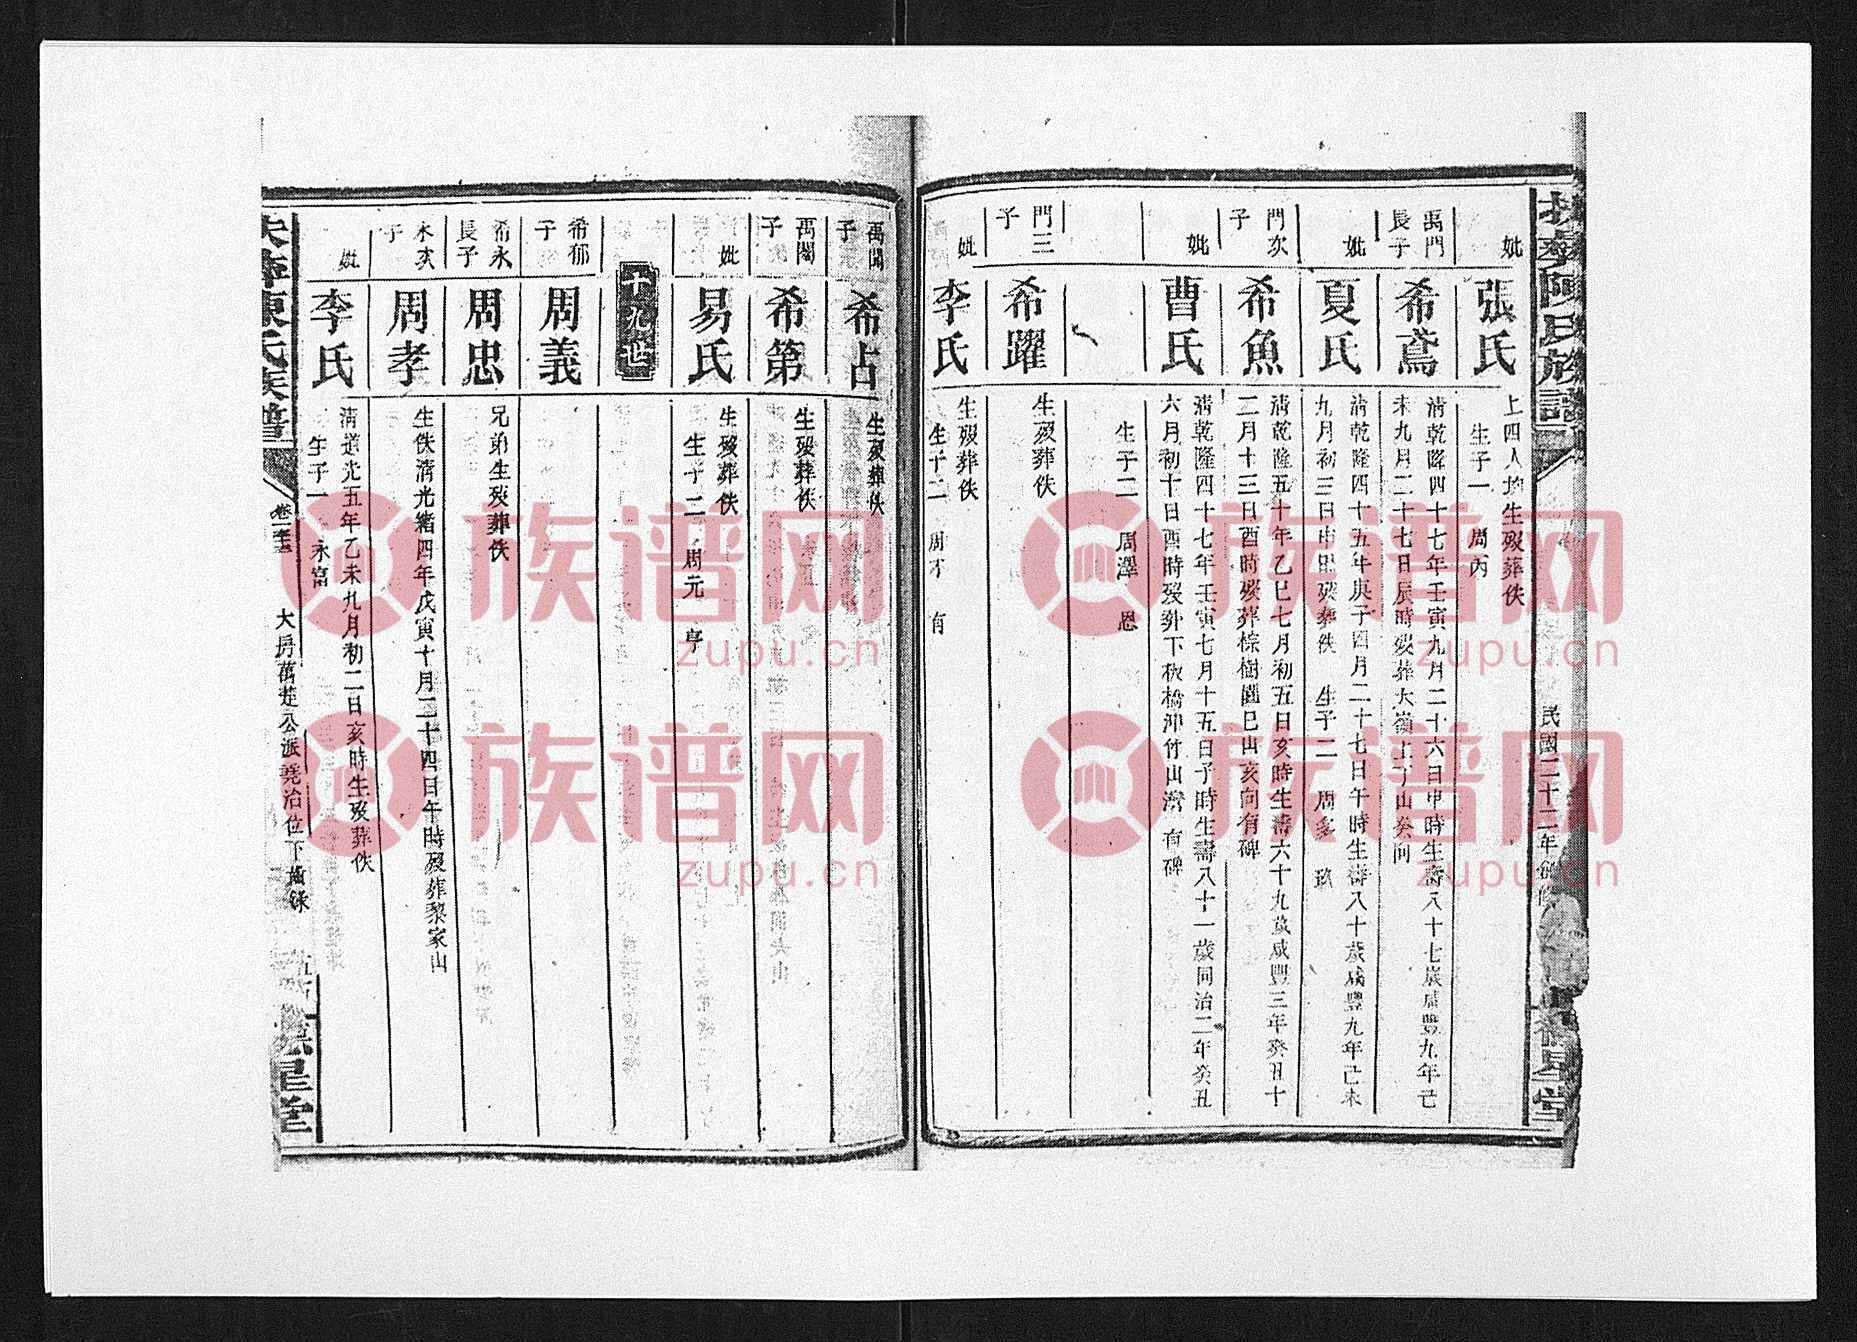 陳氏族譜
民國二十三年
星堂
妣
張氏
上四人均生殁葬佚
生子一 周丙
禹門長子
希鳶
清乾隆四十七年壬寅九月二十六日申時生壽八十七歲咸豐九年己
未九月二十七日辰時殁葬大嶺上丁山癸向
妣
夏氏
清乾隆四十五年庚子四月二十七日午時生壽八十歲咸豐九年己未
九月初三日申時殁葬佚 生子二 周多 玖
門次子
希魚
清乾隆五十年乙巳七月初五日亥時生壽六十九歲咸豐三年癸丑十
二月十三日酉時殁葬棕樹園巳山亥向有碑
妣
曹氏
清乾隆四十七年壬寅七月十五日子時生壽八十一歲同治二年癸丑
六月初十日酉時殁葬下板橋沖竹山灣 有碑
生子二 周澤 恩
門三子
希躍
生殁葬佚
妣
李氏
生殁葬佚
生子二 周才 有
禹閶子
希占
生殁葬佚
禹閣子
希第
生殁葬佚
妣
易氏
生殁葬佚
生子二 周元 亨
十九世
希郁子
周義
希永長子
周忠
兄弟生殁葬佚
永次子
周孝
生佚清光緒四年戊寅十月二十四日午時殁葬黎家山
妣
李氏
清道光五年乙未九月初二日亥時生殁葬佚
生子一 永富
陳氏族譜
大房萬楚公派堯治位下齒錄
星堂
族谱网
zupu.cn
族谱网
zupu.cn
族谱网
zupu.cn
族谱网
zupu.cn